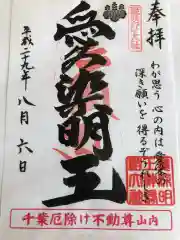 奉拝
わが思う心の内は愛染の
深き願いを得るぞうれしき
愛染明王
平成二十九年八月六日
千葉厄除け不動尊山内